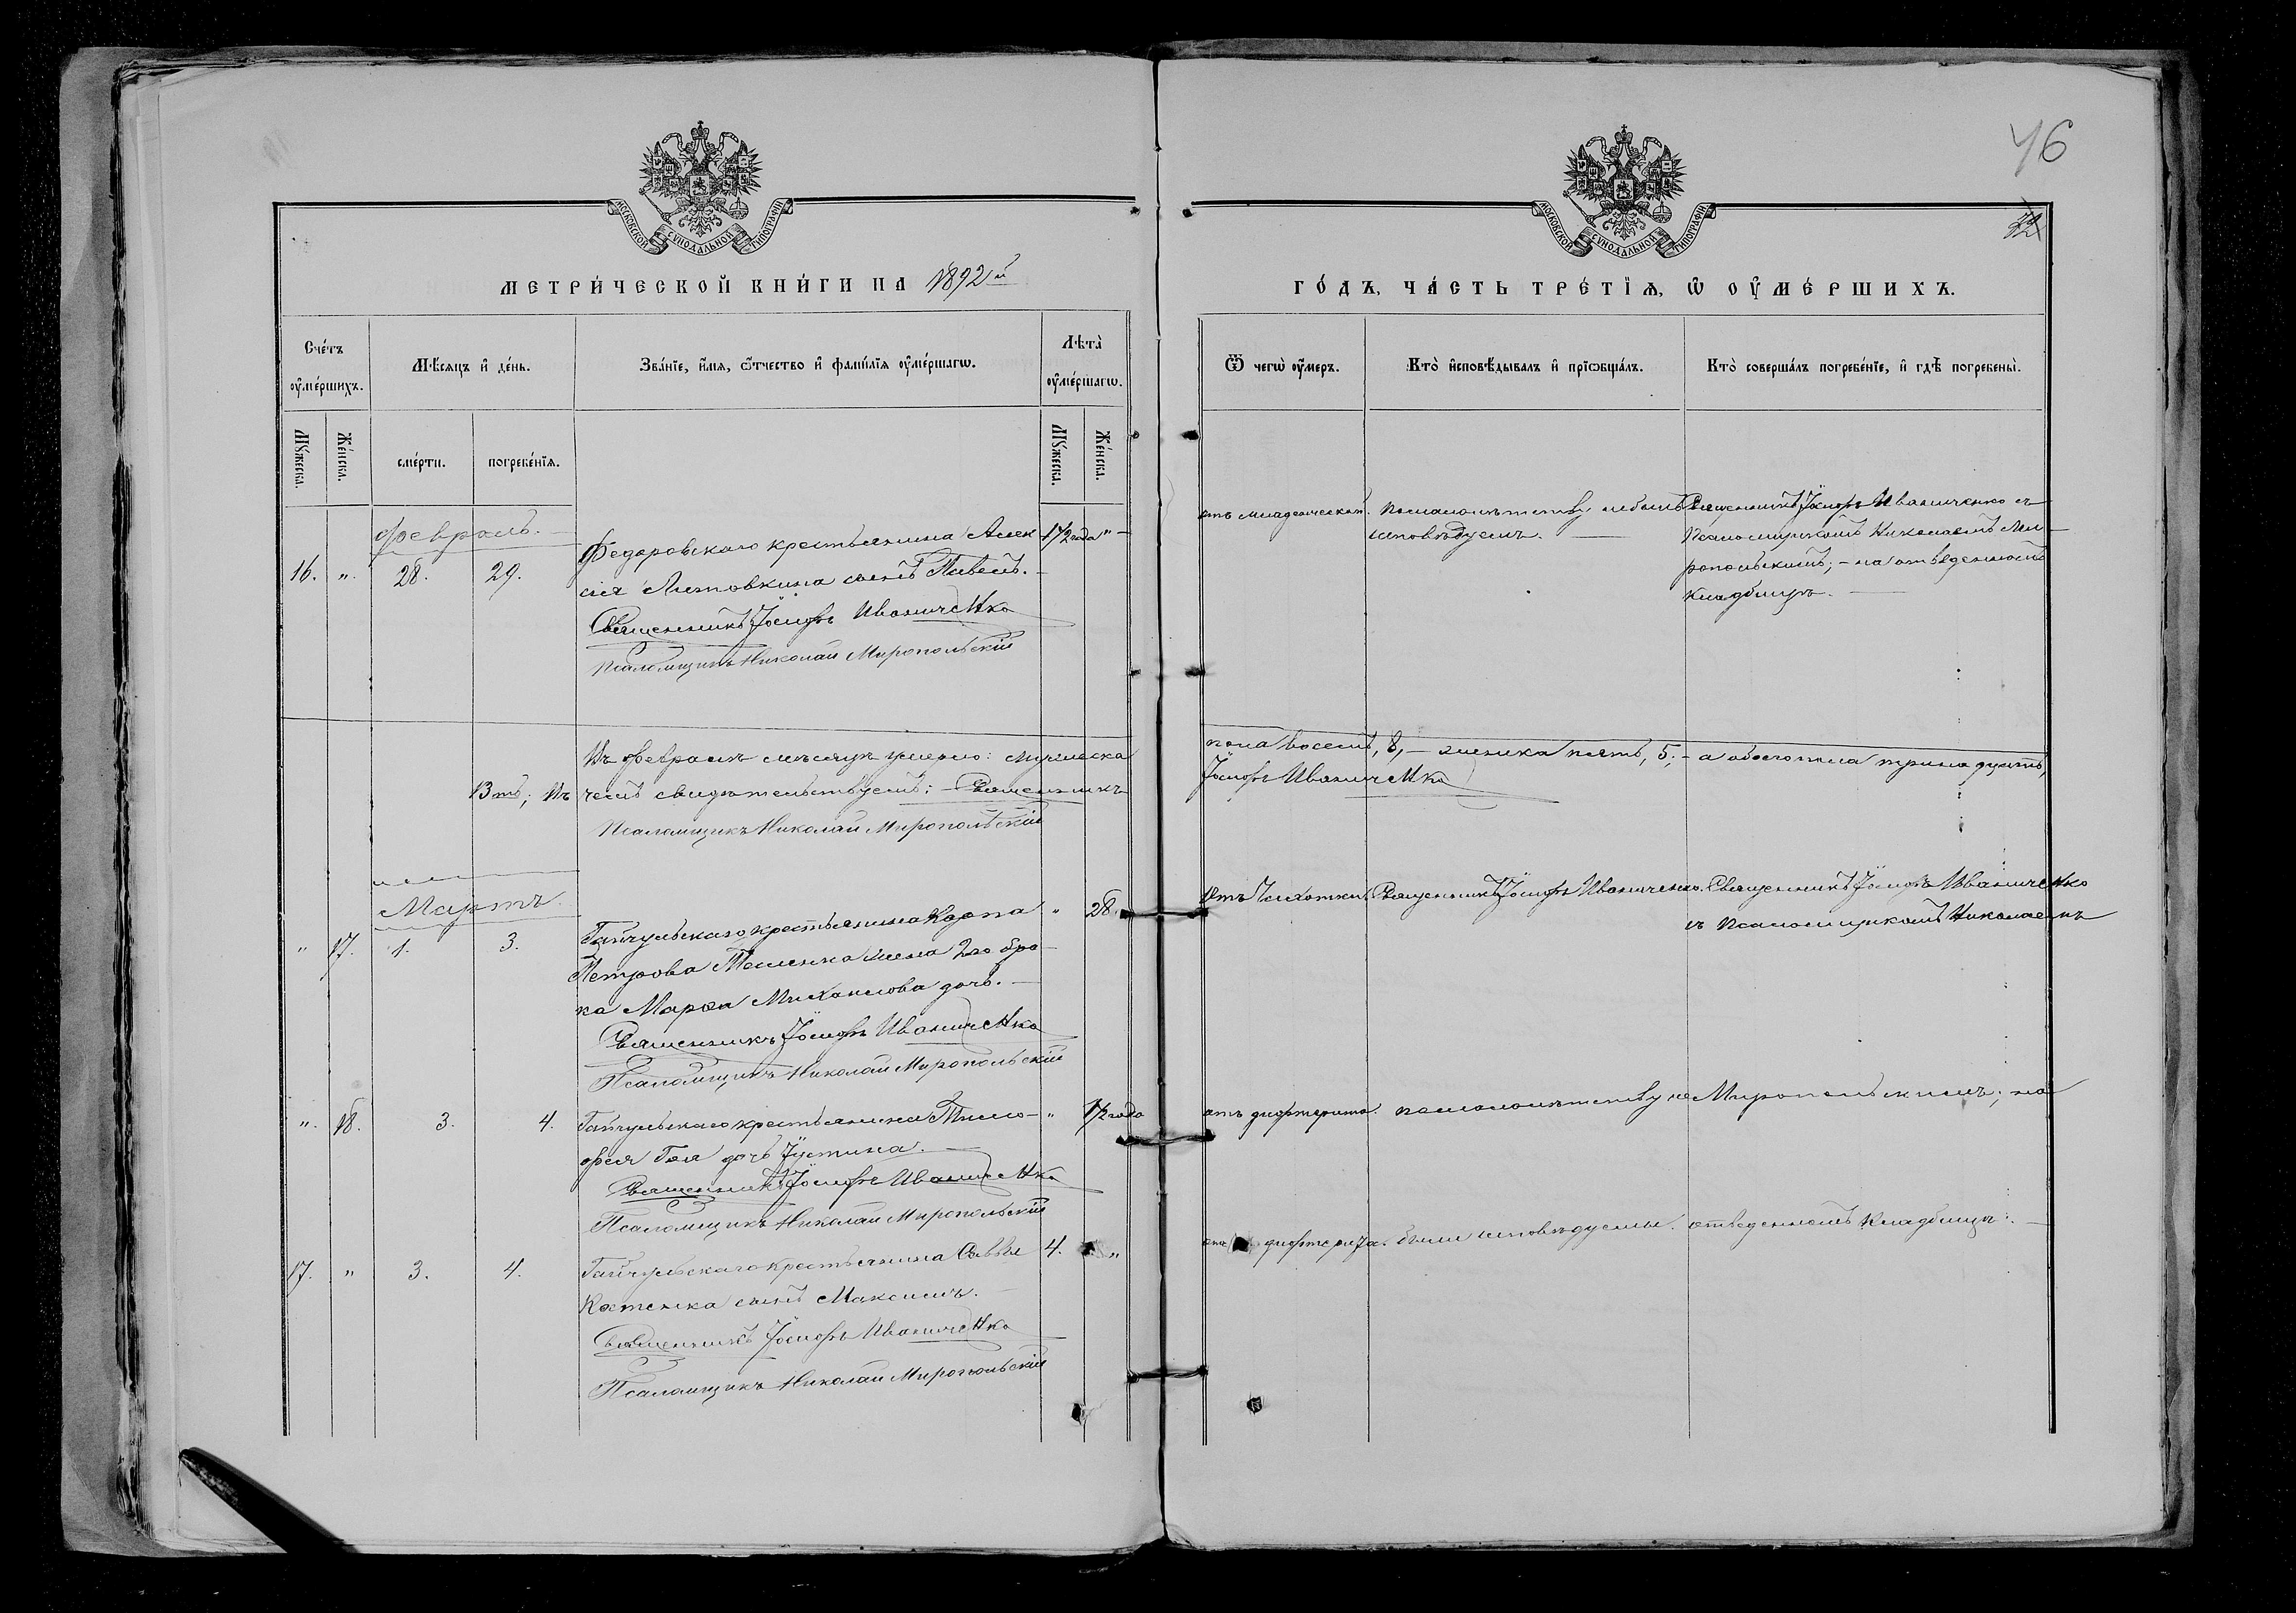 46
МОСКОВСКОЙ СУНОДАЛЬНОЙ ТИПОГРАФІИ
МЕТРИ́ЧЕСКОЙ КНИ́ГИ НА 1892й
Сче́тъ оу҆ме́ршихъ.
Мѣ́сяцъ и҆ де́нь.
Зва́нїе, и҆́мѧ, ѻ҆́тчество и҆ фами́лїѧ оу҆ме́ршагѡ.
Лѣта̀ оу҆ме́ршагѡ.
Мꙋ́жеска.
Же́нска.
сме́рти.
погребе́нїѧ.
Мꙋ́жеска.
Же́нска.
Февраль.
16. „. 28. 29.
Федоровскаго крестьянина Алек
1 1/2 года „
сія Литовкина сынъ Павелъ.
Священникъ Іосифъ Иваниченко
Псаломщикъ Николай Миропольскій
Въ февралѣ мѣсяцѣ умерло: мужеска
13ть; Въ чемъ свидѣтельствуемъ: Священникъ
Псаломщикъ Николай Миропольскій
Мартъ.
„ 17. 1. 3.
Гайчульскаго крестьянина Карпа
„ 28.
Петрова жена 2го бра
ка Марѳа Михаилова дочь.
Священникъ Іосифъ Иваниченко
Псаломщикъ Николай Миропольскій
„. 18. 3. 4.
Гайчульскаго крестьянина Тимо-
„ 1/2 года
фея дочь Іустина.
Священникъ Іосифъ Иваниченко
Псаломщикъ Николай Миропольскій
17. „ 3. 4.
Гайчульскаго крестьянина Саввы
4. „
Костенка сынъ Максимъ.
Священникъ Іосифъ Иваниченко
Псаломщикъ Николай Миропольскій
МОСКОВСКОЙ СУНОДАЛЬНОЙ ТИПОГРАФІИ
ГО́ДЪ, ЧА́СТЬ ТРЕ́ТЇѦ, Ѡ҆ ОУ҆МЕ́РШИХЪ.
Ѿ чегѡ̀ оу҆́меръ.
Кто̀ и҆сповѣ́дывалъ и҆ прїѡбща́лъ.
Кто̀ соверша́лъ погребе́нїе, и҆ гдѣ̀ погребены̀.
отъ младенческой.
По малолѣтству не былъ
исповѣдуемъ.
Священникъ Іосифъ Иваниченко съ
Псаломщикомъ Николаемъ Ми-
ропольскимъ; – на отведенномъ
кладбищѣ.
пола восемь, 8, – женска пять, 5; – а обоего пола тринадцать,
Іосифъ Иваниченко
Отъ Чахотки.
Священникъ Іосифъ Иваниченко.
Священникъ Іосифъ Иваниченко
съ Псаломщикомъ Николаемъ
отъ дифтерита.
по малолѣтству не
Миропольскимъ; на
отъ дифтерита.
были исповѣдуемы.
отведенномъ кладбищѣ.